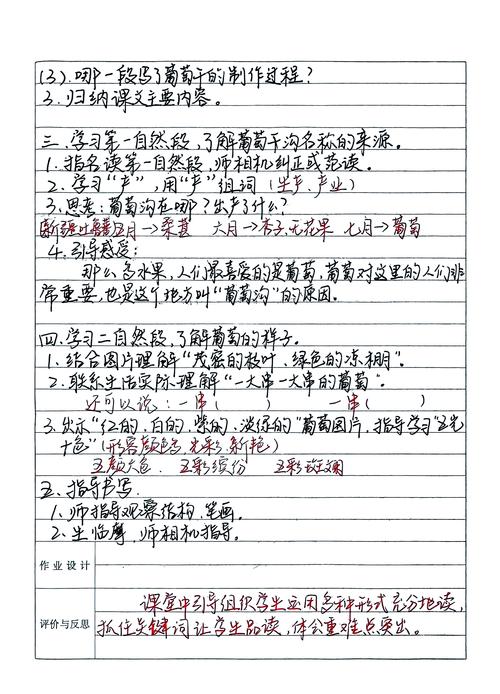 (3).哪一段写了葡萄干的制作过程?
3.归纳课文主要内容。
三.学习第一自然段,了解葡萄干沟名称的来源。
1.指名读第一自然段,师相机纠正或范读。
2.学习“产”,用“产”组词(生产、产业)
3.思考:葡萄沟在哪?出产了什么?
(新疆吐鲁番)五月→桑葚 六月→杏子.无花果 七月→葡萄
4.引导感受:
那么多水果,人们最喜爱的是葡萄,葡萄对这里的人们非
常重要,也是这个地方叫“葡萄沟”的原因。
四.学习二自然段,了解葡萄的样子。
1.结合图片理解“茂密的枝叶、绿色的凉棚”。
2.联系生活实际理解“一大串一大串的葡萄”。
还可以说:一串( ) 一串( )
3.出示“红的、白的、紫的、淡绿的”葡萄图片,指导学习“五光
十色”(形容颜色多,光彩.新艳)
五颜六色 五彩缤纷 五彩斑斓
五.指导书写.
1.师指导观察结构、笔画。
2.生临摹,师相机指导。
作业设计
课堂中引导组织学生运用多种形式充分地读,
评价与反思
抓住关键词让学生品读,体会重难点突出。